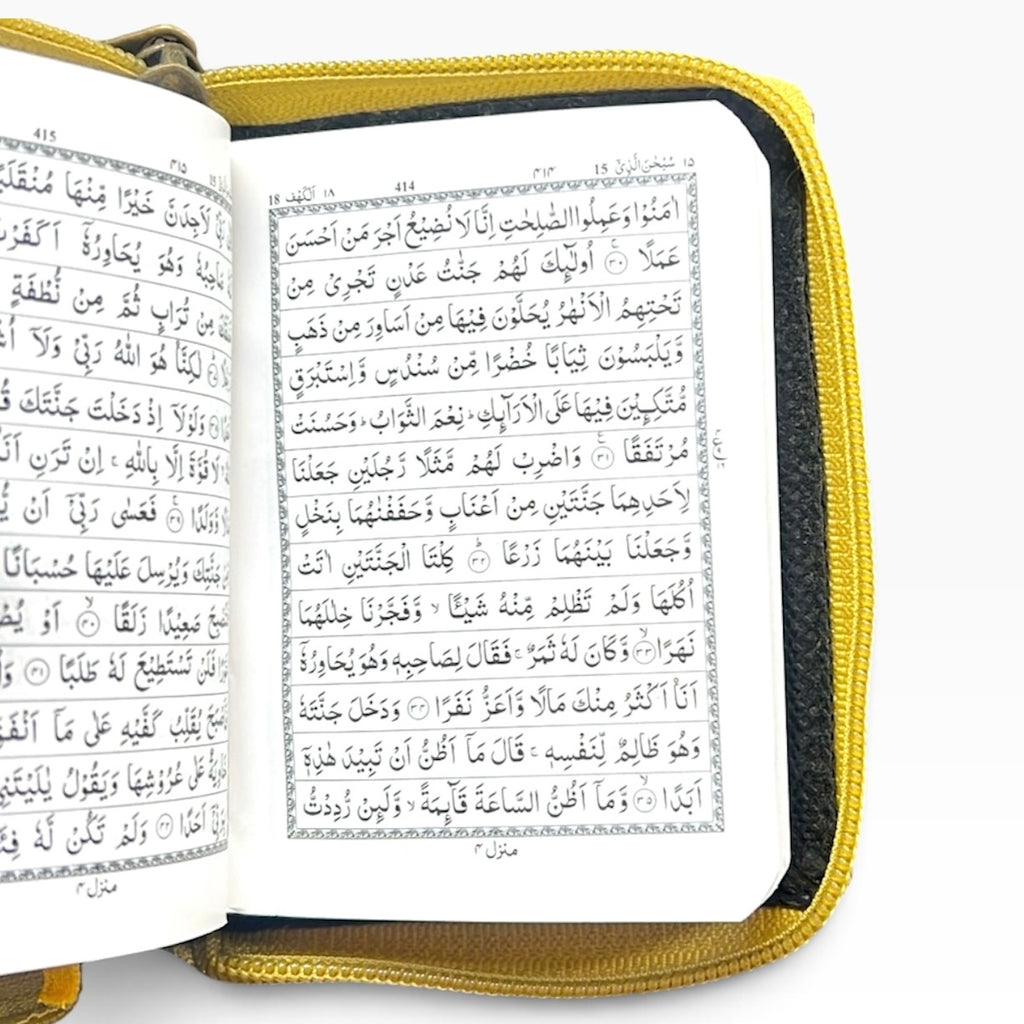 ١٥ سُبْحٰنَ الَّذِیْۤ 15
٤١٤
414
١٨ اَلْكَهْف 18
اٰمَنُوْا وَعَمِلُوا الصّٰلِحٰتِ اِنَّا لَا نُضِیْعُ اَجْرَ مَنْ اَحْسَنَ
عَمَلًا ۚ ﴿٣٠﴾ اُولٰٓىِٕكَ لَهُمْ جَنّٰتُ عَدْنٍ تَجْرِیْ مِنْ
تَحْتِهِمُ الْاَنْهٰرُ یُحَلَّوْنَ فِیْهَا مِنْ اَسَاوِرَ مِنْ ذَهَبٍ
وَّیَلْبَسُوْنَ ثِیَابًا خُضْرًا مِّنْ سُنْدُسٍ وَّاِسْتَبْرَقٍ
مُّتَّكِـِٕیْنَ فِیْهَا عَلَی الْاَرَآىِٕكِ ؕ نِعْمَ الثَّوَابُ ؕ وَحَسُنَتْ
مُرْتَفَقًا ۧ ﴿٣١﴾ وَاضْرِبْ لَهُمْ مَّثَلًا رَّجُلَیْنِ جَعَلْنَا
لِاَحَدِهِمَا جَنَّتَیْنِ مِنْ اَعْنَابٍ وَّحَفَفْنٰهُمَا بِنَخْلٍ
وَّجَعَلْنَا بَیْنَهُمَا زَرْعًا ﴿٣٢﴾ كِلْتَا الْجَنَّتَیْنِ اٰتَتْ
اُكُلَهَا وَلَمْ تَظْلِمْ مِّنْهُ شَیْـًٔا ۙ وَّفَجَّرْنَا خِلٰلَهُمَا
نَهَرًا ۙ ﴿٣٣﴾ وَّكَانَ لَهٗ ثَمَرٌ ۚ فَقَالَ لِصَاحِبِهٖ وَهُوَ یُحَاوِرُهٗۤ
اَنَا اَكْثَرُ مِنْكَ مَالًا وَّاَعَزُّ نَفَرًا ﴿٣٤﴾ وَدَخَلَ جَنَّتَهٗ
وَهُوَ ظَالِمٌ لِّنَفْسِهٖ ۚ قَالَ مَاۤ اَظُنُّ اَنْ تَبِیْدَ هٰذِهٖۤ
اَبَدًا ۙ ﴿٣٥﴾ وَّمَاۤ اَظُنُّ السَّاعَةَ قَآىِٕمَةً ۙ وَّلَىِٕنْ رُّدِدْتُّ
منزل ٤
٤١٥
415
لَاَجِدَنَّ خَیْرًا مِّنْهَا مُنْقَلَبًا
صَاحِبُهٗ وَهُوَ یُحَاوِرُهٗۤ اَكَفَرْتَ
مِنْ تُرَابٍ ثُمَّ مِنْ نُّطْفَةٍ
لٰكِنَّا هُوَ اللّٰهُ رَبِّیْ وَلَاۤ
وَلَوْلَاۤ اِذْ دَخَلْتَ جَنَّتَكَ
لَا قُوَّةَ اِلَّا بِاللّٰهِ ۚ اِنْ تَرَنِ
وَّوَلَدًا ۚ ﴿٣٩﴾ فَعَسٰی رَبِّیْۤ اَنْ
جَنَّتِكَ وَیُرْسِلَ عَلَیْهَا حُسْبَانًا
صَعِیْدًا زَلَقًا ۙ ﴿٤٠﴾ اَوْ
فَلَنْ تَسْتَطِیْعَ لَهٗ طَلَبًا ﴿٤١﴾
یُقَلِّبُ كَفَّیْهِ عَلٰی مَاۤ اَنْفَقَ
عَلٰی عُرُوْشِهَا وَیَقُوْلُ یٰلَیْتَنِیْ
اَحَدًا ﴿٤٢﴾ وَلَمْ تَكُنْ لَّهٗ
منزل ٤